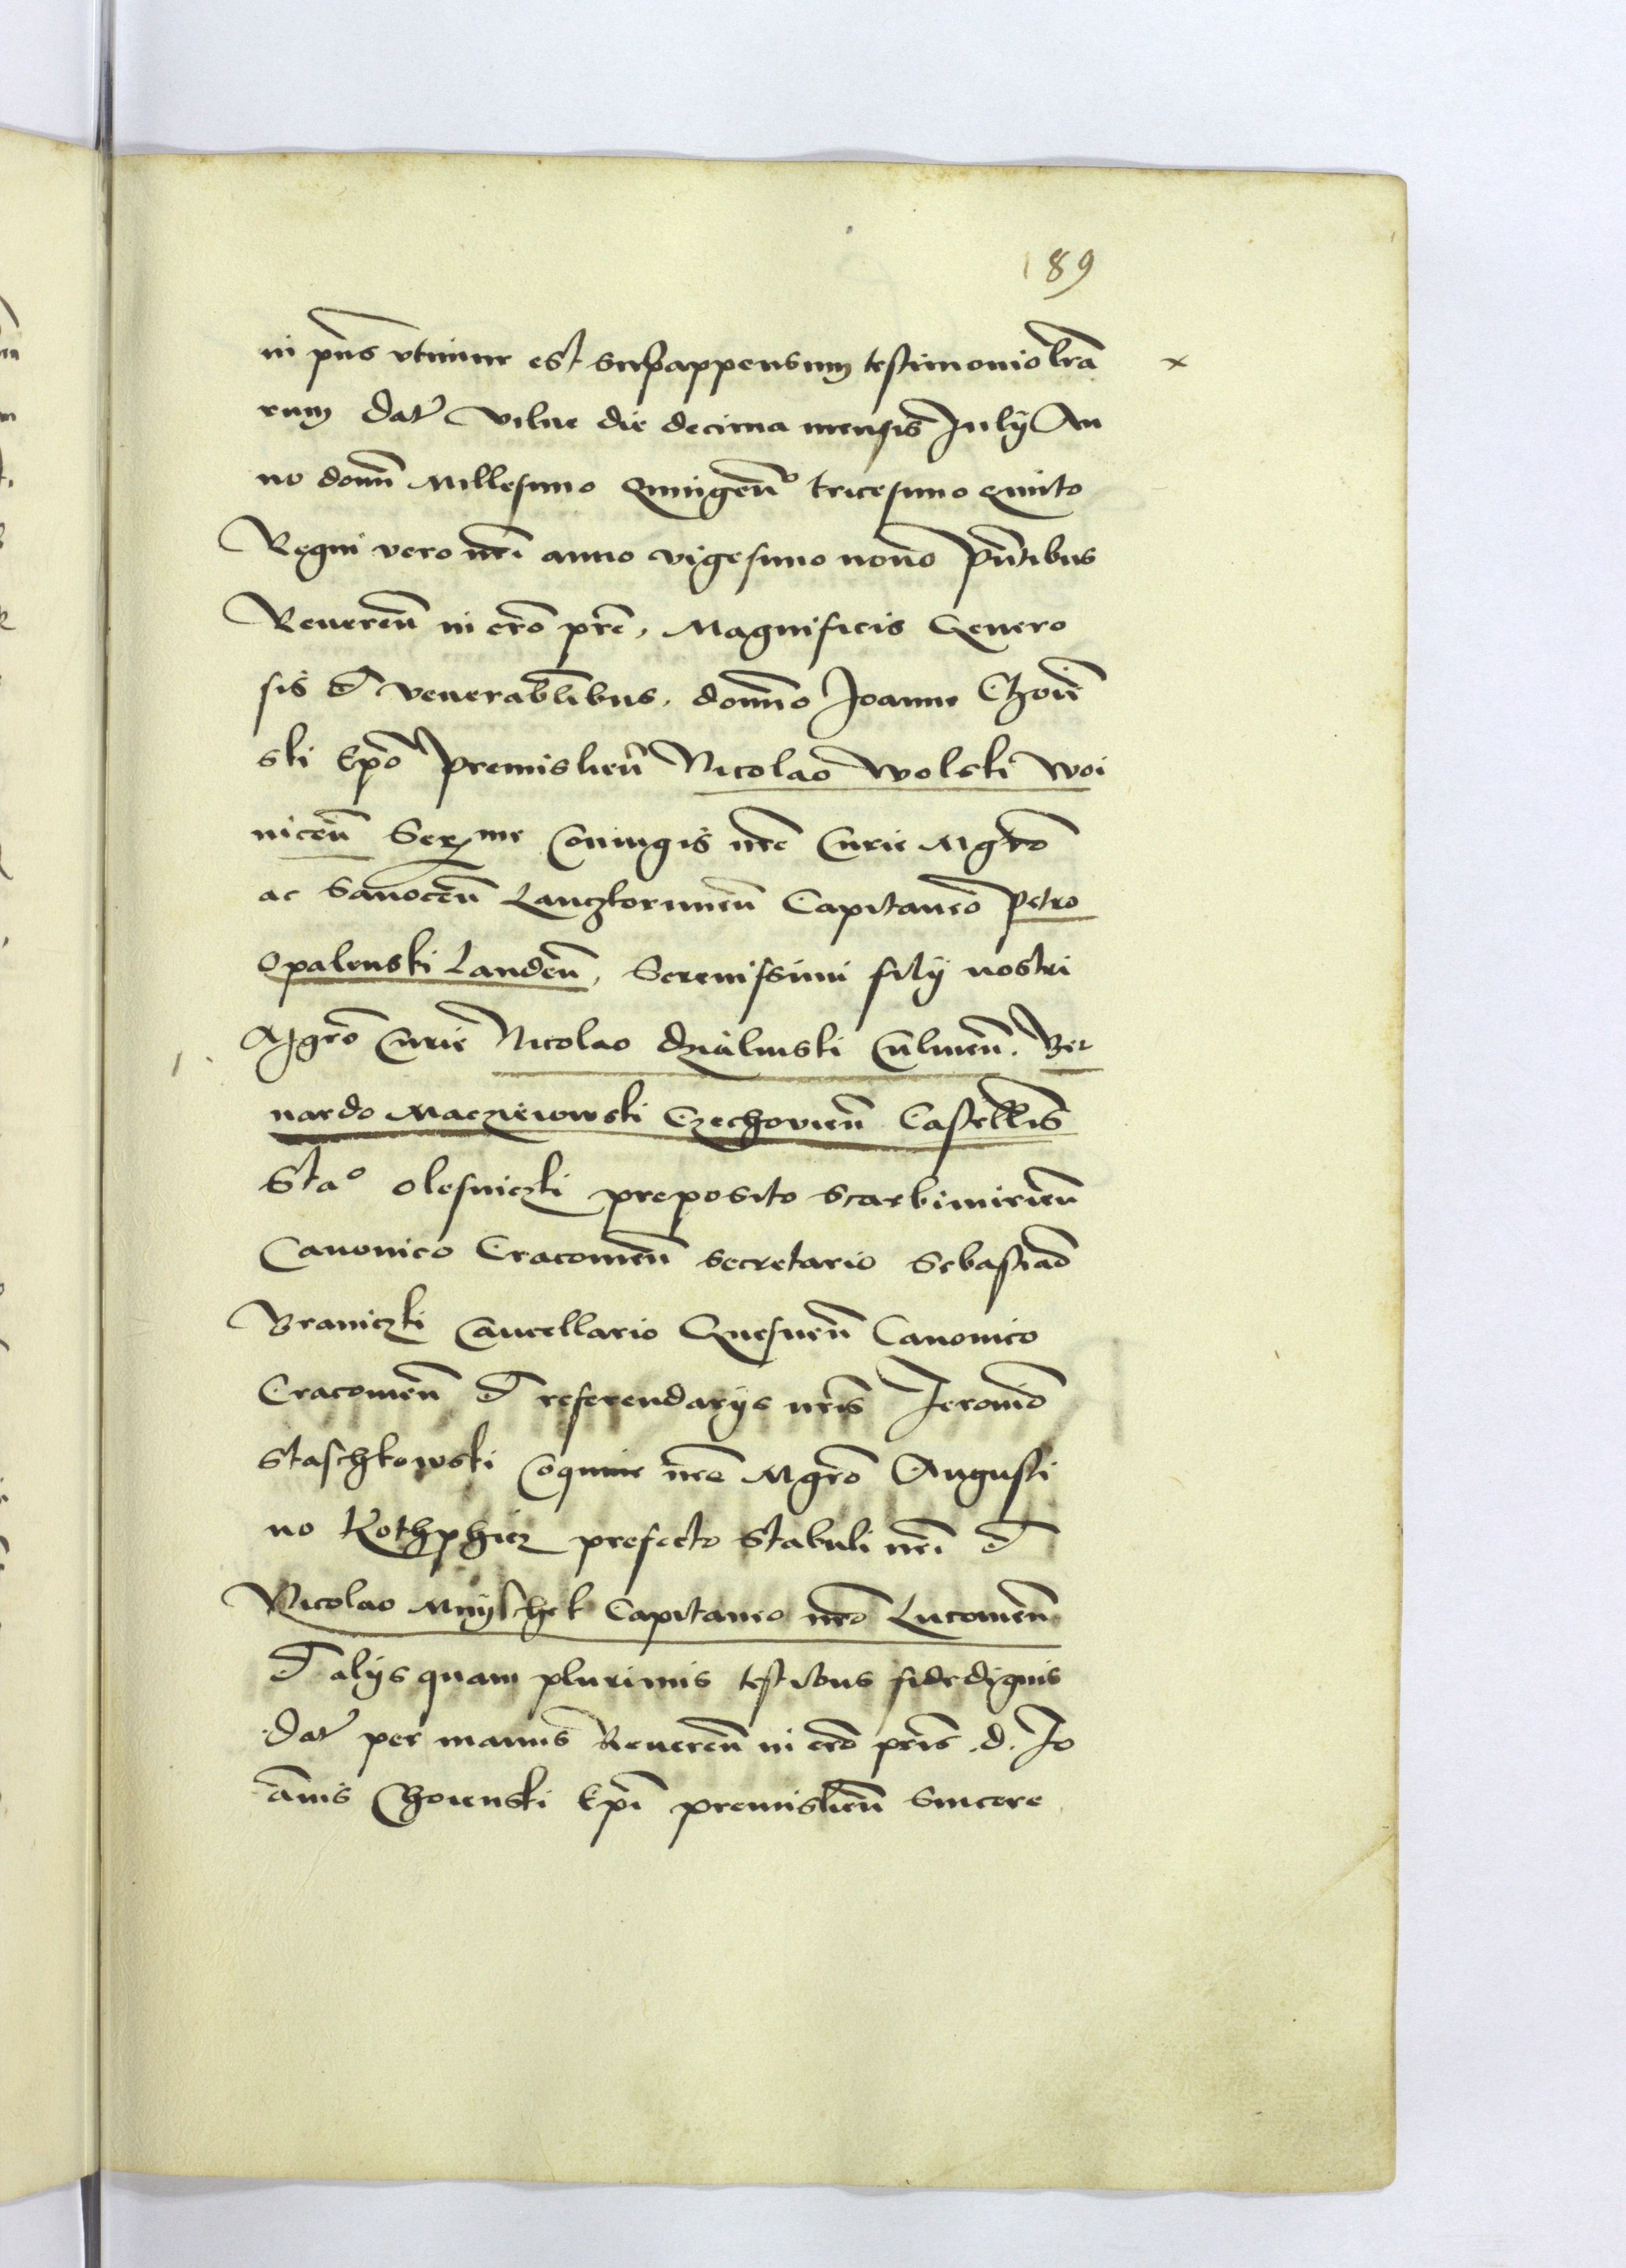 189
in pn̄s vtimur est subappensum testimonio lr̄a
rum Dat̄ Vilne die decima mensis Iulij An
no domī Millesimo Quingen̄o tricesimo quinto
Regni vero nr̄i anno vigesimo nono pn̄tibus
Reueren̄ in cr̄o pr̄e, Magnificis Genero
sis et venerabl̄ibus, domīno Joanne Choīe
ski Ep̄o Premislien̄ Nicolao Wolski Woi
nicen̄ Ser^me Coniugis nr̄e Curie Mgr̄o
ac Sanocen̄ Lanczkorunen̄ Capitaneo Petro
Opalenski Landen̄, Serenissimi filij nostri
Mgr̄o Curie Nicolao dzialinski Culmen̄. Ber
nardo Macziewowski Czechovien̄ Castellīs
Sta^o olesniczki preposito Scarbimirien̄
Canonico Cracovien̄ Secretario Sebastiāo
Braniczki Cancellario Gnesnen̄ Canonico
Cracovien̄ et referendarijs nr̄is Jeronīo
Staschkowski Coquine nr̄e Mgr̄o Augusti
no Kothphicz prefecto Stabuli nr̄i et
Nicolao Mnyschek Capitaneo nr̄o Lucovien̄
et alijs quam plurimis testibus fidedignis
Dat̄ per manus Reueren̄ in cr̄o pr̄is .d. Jo
ānis Choienski Ep̄i premislien̄ sincere